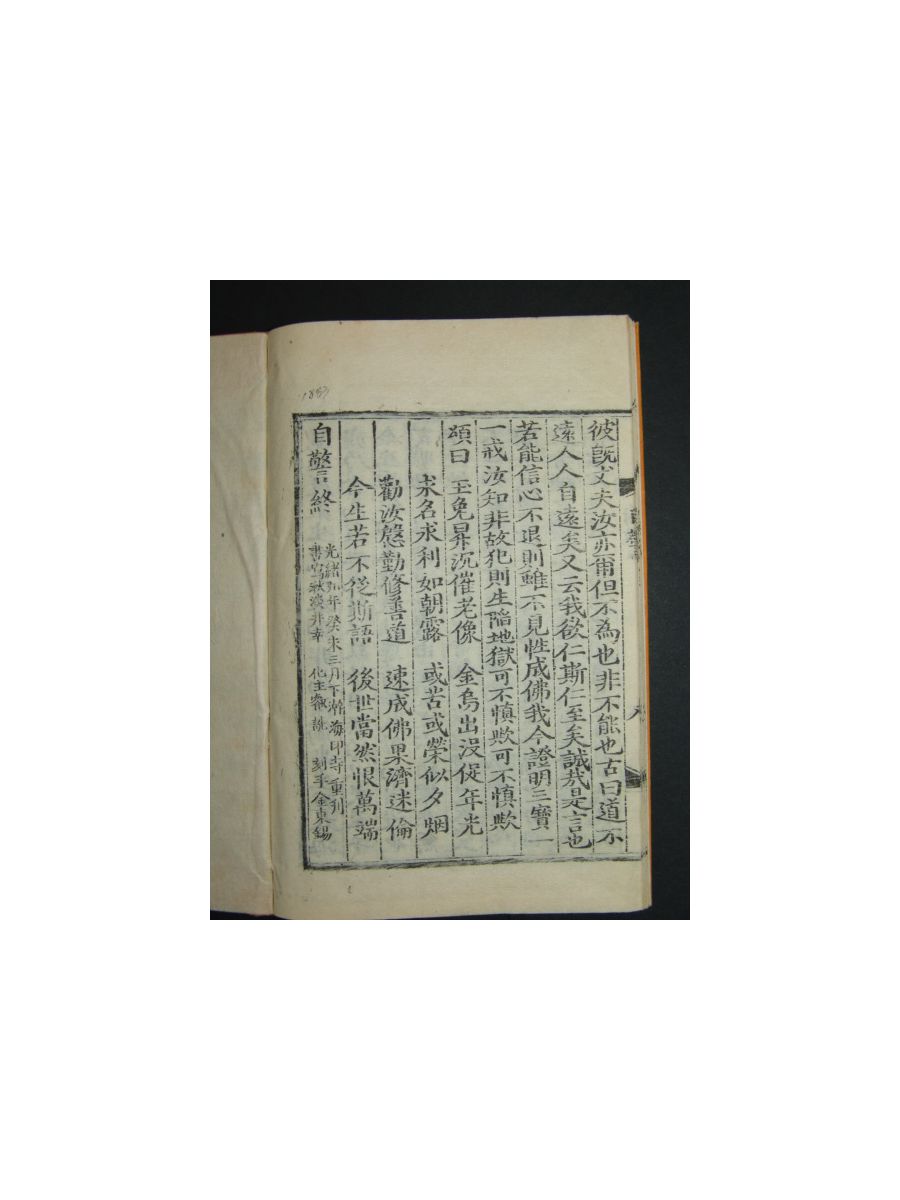 彼旣丈夫汝亦爾但不為也非不能也古曰道不
遠人人自遠矣又云我欲仁斯仁至矣誠哉是言也
若能信心不退則雖不見性成佛我今證明三寶一
一戒汝知非故犯則生陷地獄可不慎歟可不慎歟
頌曰 玉兔昇沉催老像 金烏出沒促年光
求名求利如朝露 或苦或榮似夕烟
勸汝慇勤修善道 速成佛果濟迷倫
今生若不從斯語 後世當然恨萬端
自警終
光緒九年癸未三月下澣海印寺重刊
書寫秋淡井幸 化主 說 刻手金東錫
自警
八
1883